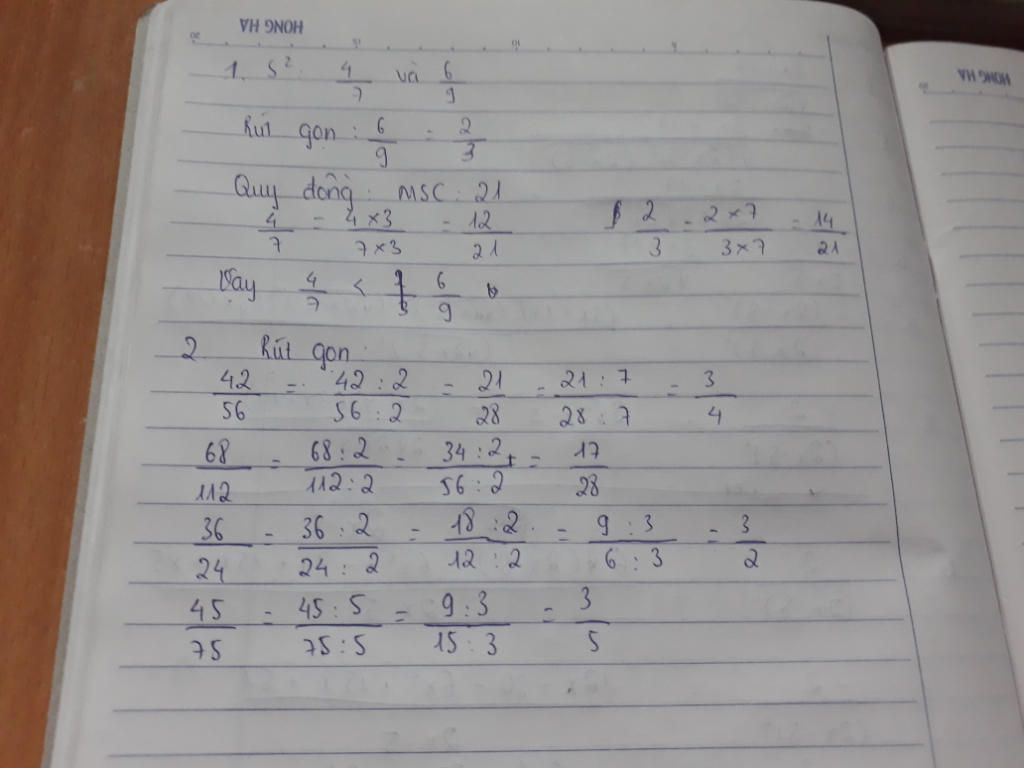 HONG HA
HONG HA
20 15 10 5
1. S² : 4/7 và 6/9
Rút gọn : 6/9 = 2/3
Quy đồng : MSC : 21
4/7 = 4 × 3/7 × 3 = 12/21 2/3 = 2 × 7/3 × 7 = 14/21
Vậy 4/7 < 6/9
2 Rút gọn :
42/56 = 42 : 2/56 : 2 = 21/28 = 21 : 7/28 : 7 = 3/4
68/112 = 68 : 2/112 : 2 = 34 : 2/56 : 2 = 17/28
36/24 = 36 : 2/24 : 2 = 18 : 2/12 : 2 = 9 : 3/6 : 3 = 3/2
45/75 = 45 : 5/75 : 5 = 9 : 3/15 : 3 = 3/5